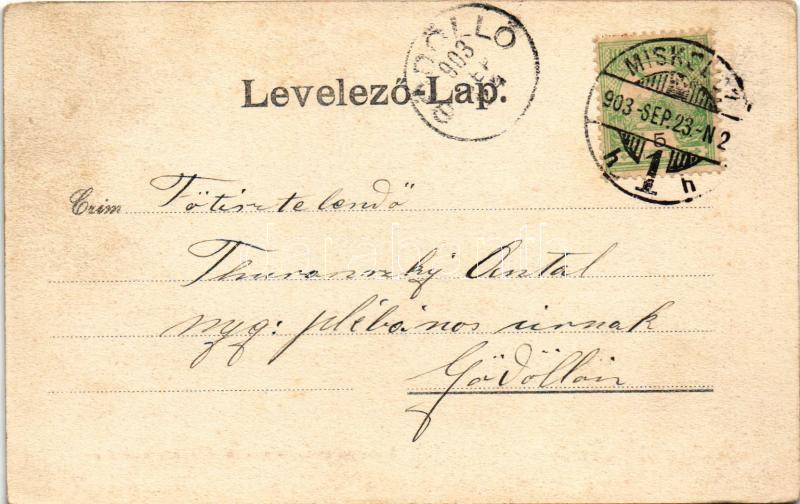 GÖDÖLLŐ
903
Levelező-Lap.
MISKOLCZ
903-SEP.23-N2
5
1
h h
Czim
Főtisztelendő
Thuránszky Antal
nyg: plébános urnak
Gödöllőn